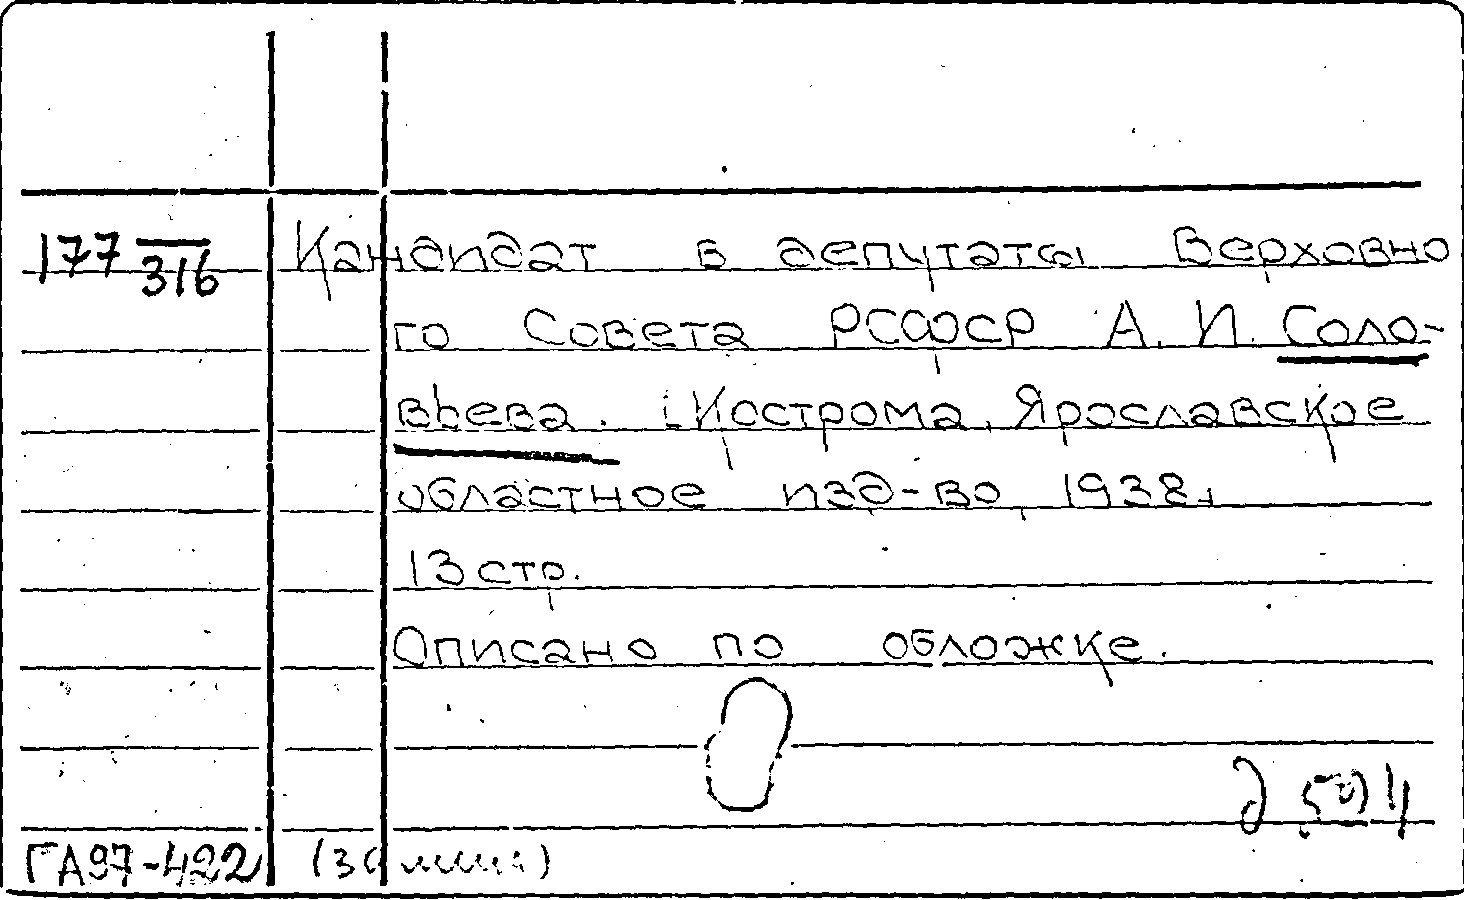 177 316 Кандидат в депутаты Верховно
го Совета РСФСР А. И. Соло-
вьева. Кострома, Ярославское
областное изд-во, 1938.
13 стр.
Описано по обложке.
ГА97-422